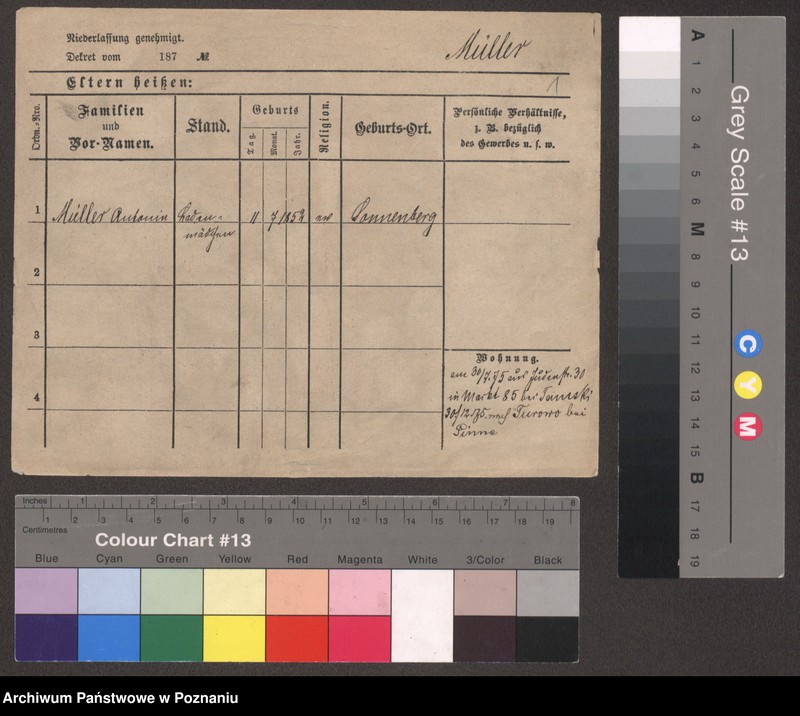 Niederlassung genehmigt.
Dekret vom 187 №
Müller
Eltern heißen:
1
Ordn.-Nro.
Familien
und
Vor-Namen.
Stand.
Geburts
Tag.
Monat.
Jahr.
Religion.
Geburts-Ort.
Persönliche Verhältnisse,
z. B. bezüglich
des Gewerbes u. s. w.
1 Müller Antonie Laden- 11 7 1852 ev Sonnenberg
mädchen
2
3
4
Wohnung.
am 30/7.75 aus Judenstr. 30
in Markt 85 bei Tomski
30/12.75. nach Turowo bei
Pinne
Inches 1 2 3 4 5 6 7 8
1 2 3 4 5 6 7 8 9 10 11 12 13 14 15 16 17 18 19
Centimetres
Colour Chart #13
Blue Cyan Green Yellow Red Magenta White 3/Color Black
Grey Scale #13
A 1 2 3 4 5 6 M 8 9 10 11 12 13 14 15 B 17 18 19
C
Y
M
Archiwum Państwowe w Poznaniu